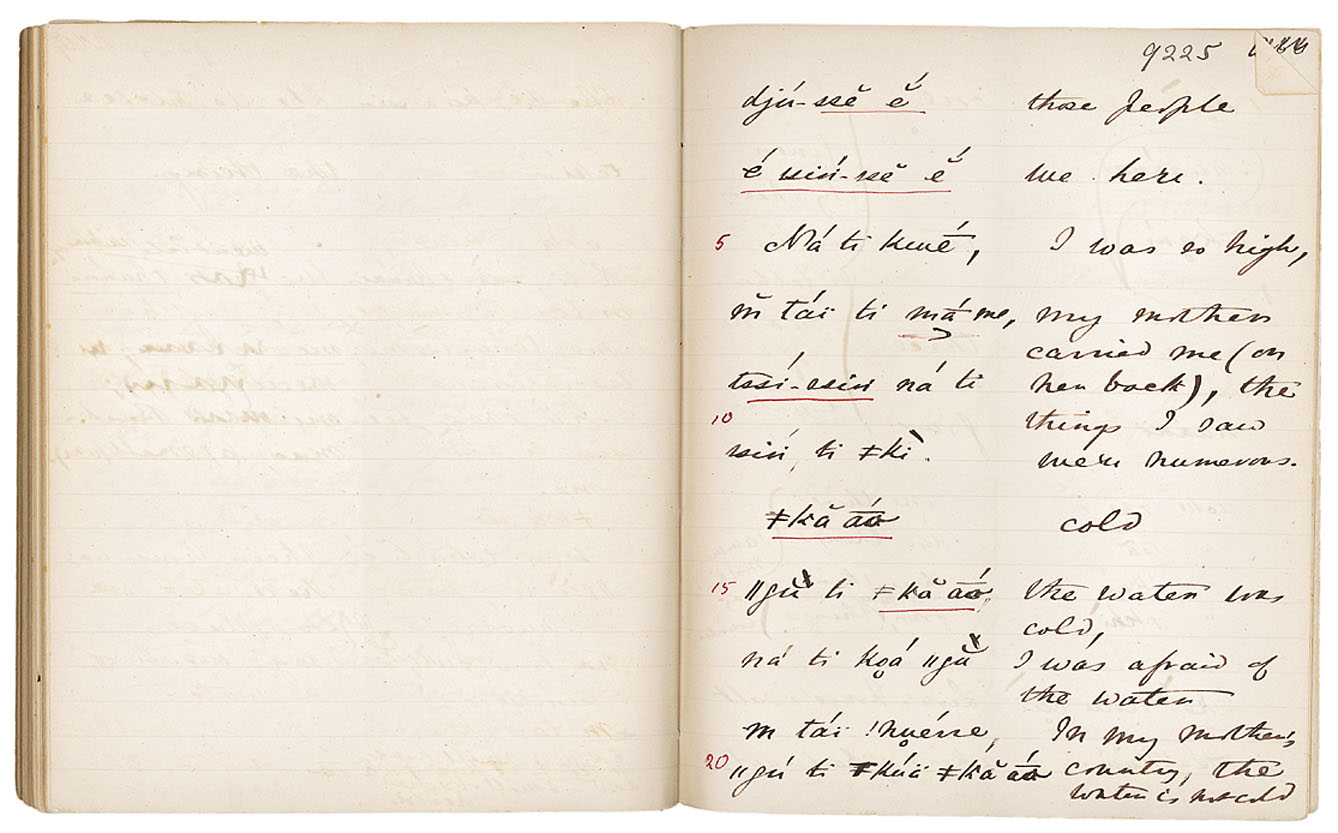 9225
djú-ssĕ ĕ́ those people
é́ sin-́sĕ ĕ́ we here.
5 Ná ti kuḗ, I was so high,
m̆ táï ti má me, my mother
carried me (on
tsí-sin ná ti her back), the
10 things I saw
sin,́ ti ǂkì. were numerous.
ǂkă āó cold
15 ǁgŭ ti ǂkă āó the water was
cold,
ná ti ko̯á ǁgŭ I was afraid of
the water
m táï !nu̯érre, In my mother's
20 ǁgú ti ǂkúï ǂkă āó country, the
water is not cold